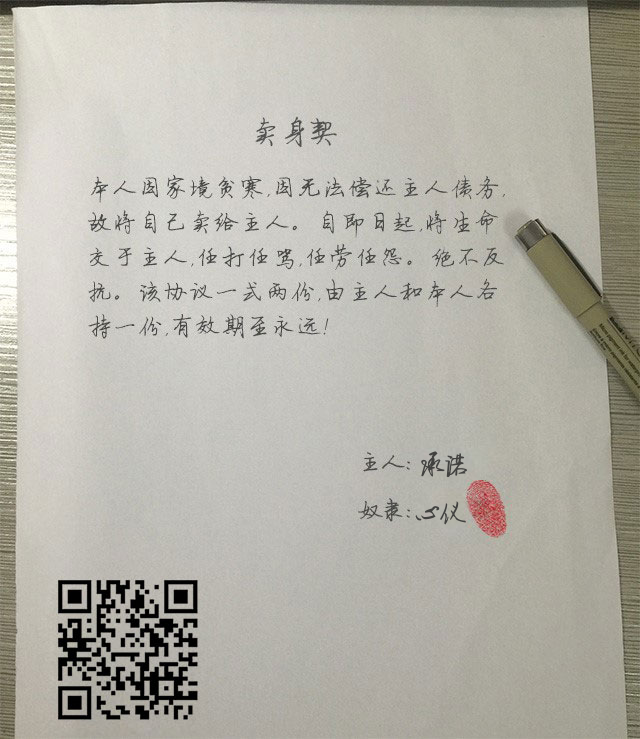 卖身契
本人因家境贫寒,因无法偿还主人债务,
故将自己卖给主人。自即日起,将生命
交于主人,任打任骂,任劳任怨。绝不反
抗。该协议一式两份,由主人和本人各
持一份,有效期至永远!
主人:承诺
奴隶:心仪